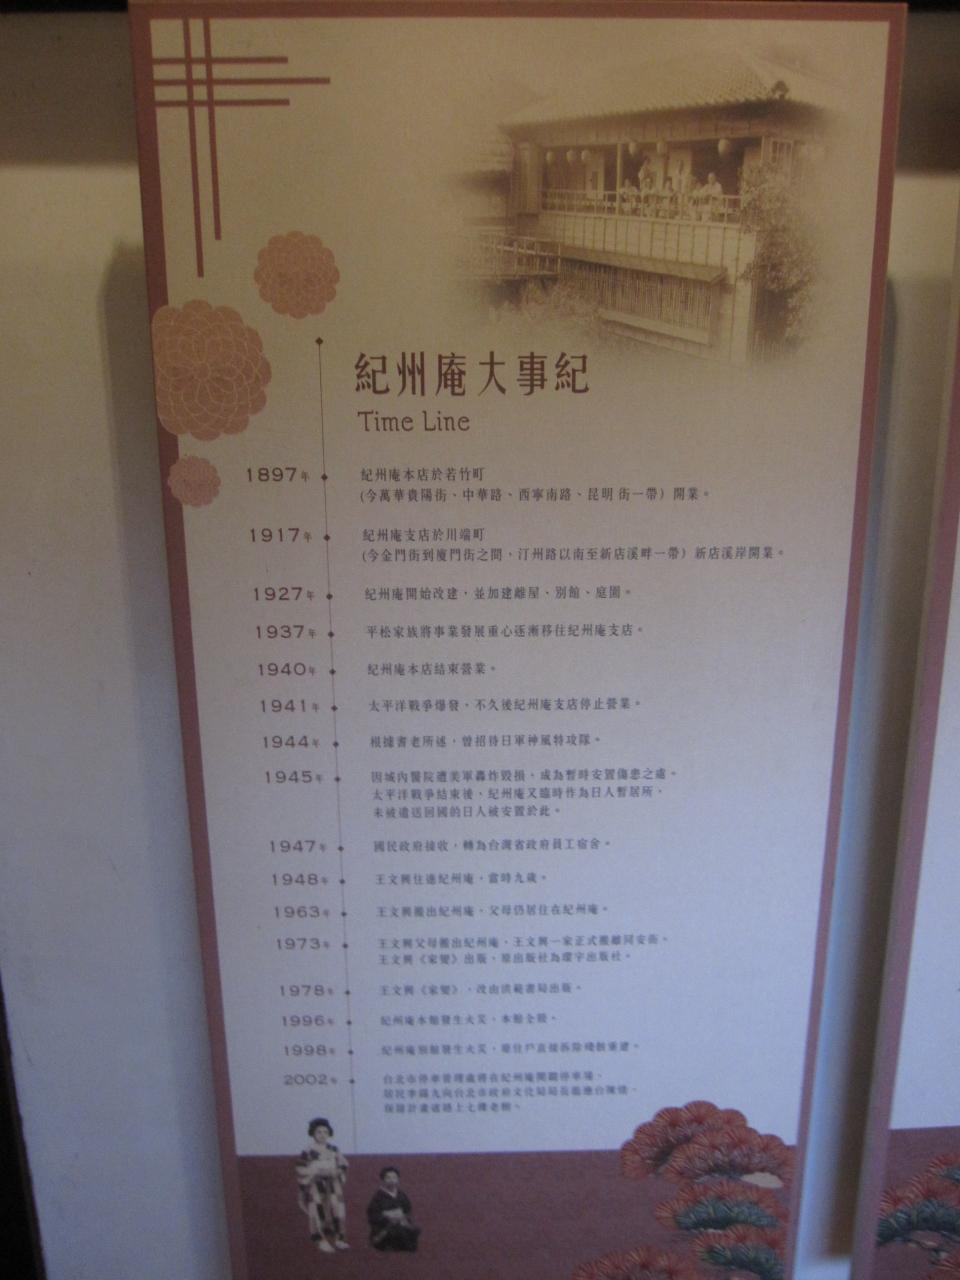 紀州庵大事紀
Time Line
1897年 紀州庵本店於若竹町
(今萬華貴陽街、中華路、西寧南路、昆明 街一帶) 開業。
1917年 紀州庵支店於川端町
(今金門街到廈門街之間,汀州路以南至新店溪畔一帶) 新店溪岸開業。
1927年 紀州庵開始改建,並加建離屋、別館、庭園。
1937年 平松家族將事業發展重心逐漸移往紀州庵支店。
1940年 紀州庵本店結束營業。
1941年 太平洋戰爭爆發,不久後紀州庵支店停止營業。
1944年 根據耆老所述,曾招待日軍神風特攻隊。
1945年 因城內醫院遭美軍轟炸毀損,成為暫時安置傷患之處。
太平洋戰爭結束後,紀州庵又臨時作為日人暫居所,
未被遣送回國的日人被安置於此。
1947年 國民政府接收,轉為台灣省政府員工宿舍。
1948年 王文興住進紀州庵,當時九歲。
1963年 王文興搬出紀州庵,父母仍居住在紀州庵。
1973年 王文興父母搬出紀州庵,王文興一家正式搬離同安街。
王文興《家變》出版,原出版社為環宇出版社。
1978年 王文興《家變》,改由洪範書局出版。
1996年 紀州庵本館發生火災,本館全毀。
1998年 紀州庵別館發生火災,
2002年 台北市停車管理處將在紀州庵開闢停車場,